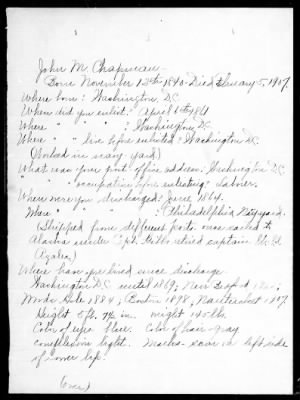 John M. Chapman
Born November 12th 1840 - Died February 5, 1907.
Where born? Washington, D.C.
When did you enlist? April 6th 1861
Where " " " ? Washington, D.C.
Where " " live before enlisted? Washington D.C.
(Worked in navy yard)
What was your post office address? Washington D.C.
" " " occupation before enlisting? Laborer.
Where were you discharged? June 1864.
Where " " " Philadelphia Navy yard.
(Shipped from different ports once sailed to
Alaska under Capt. retired captain
Where have you lived since discharge.
Washington D.C. until 1869; New Bedford
Woods Hole 1884; Boston 1898; Nantucket 1907.
Height 5 ft. 7½ in. weight 145 lbs.
Color of eyes blue. Color of hair gray
complexion light. Marks - scar on left side
of lower lip.
(over)